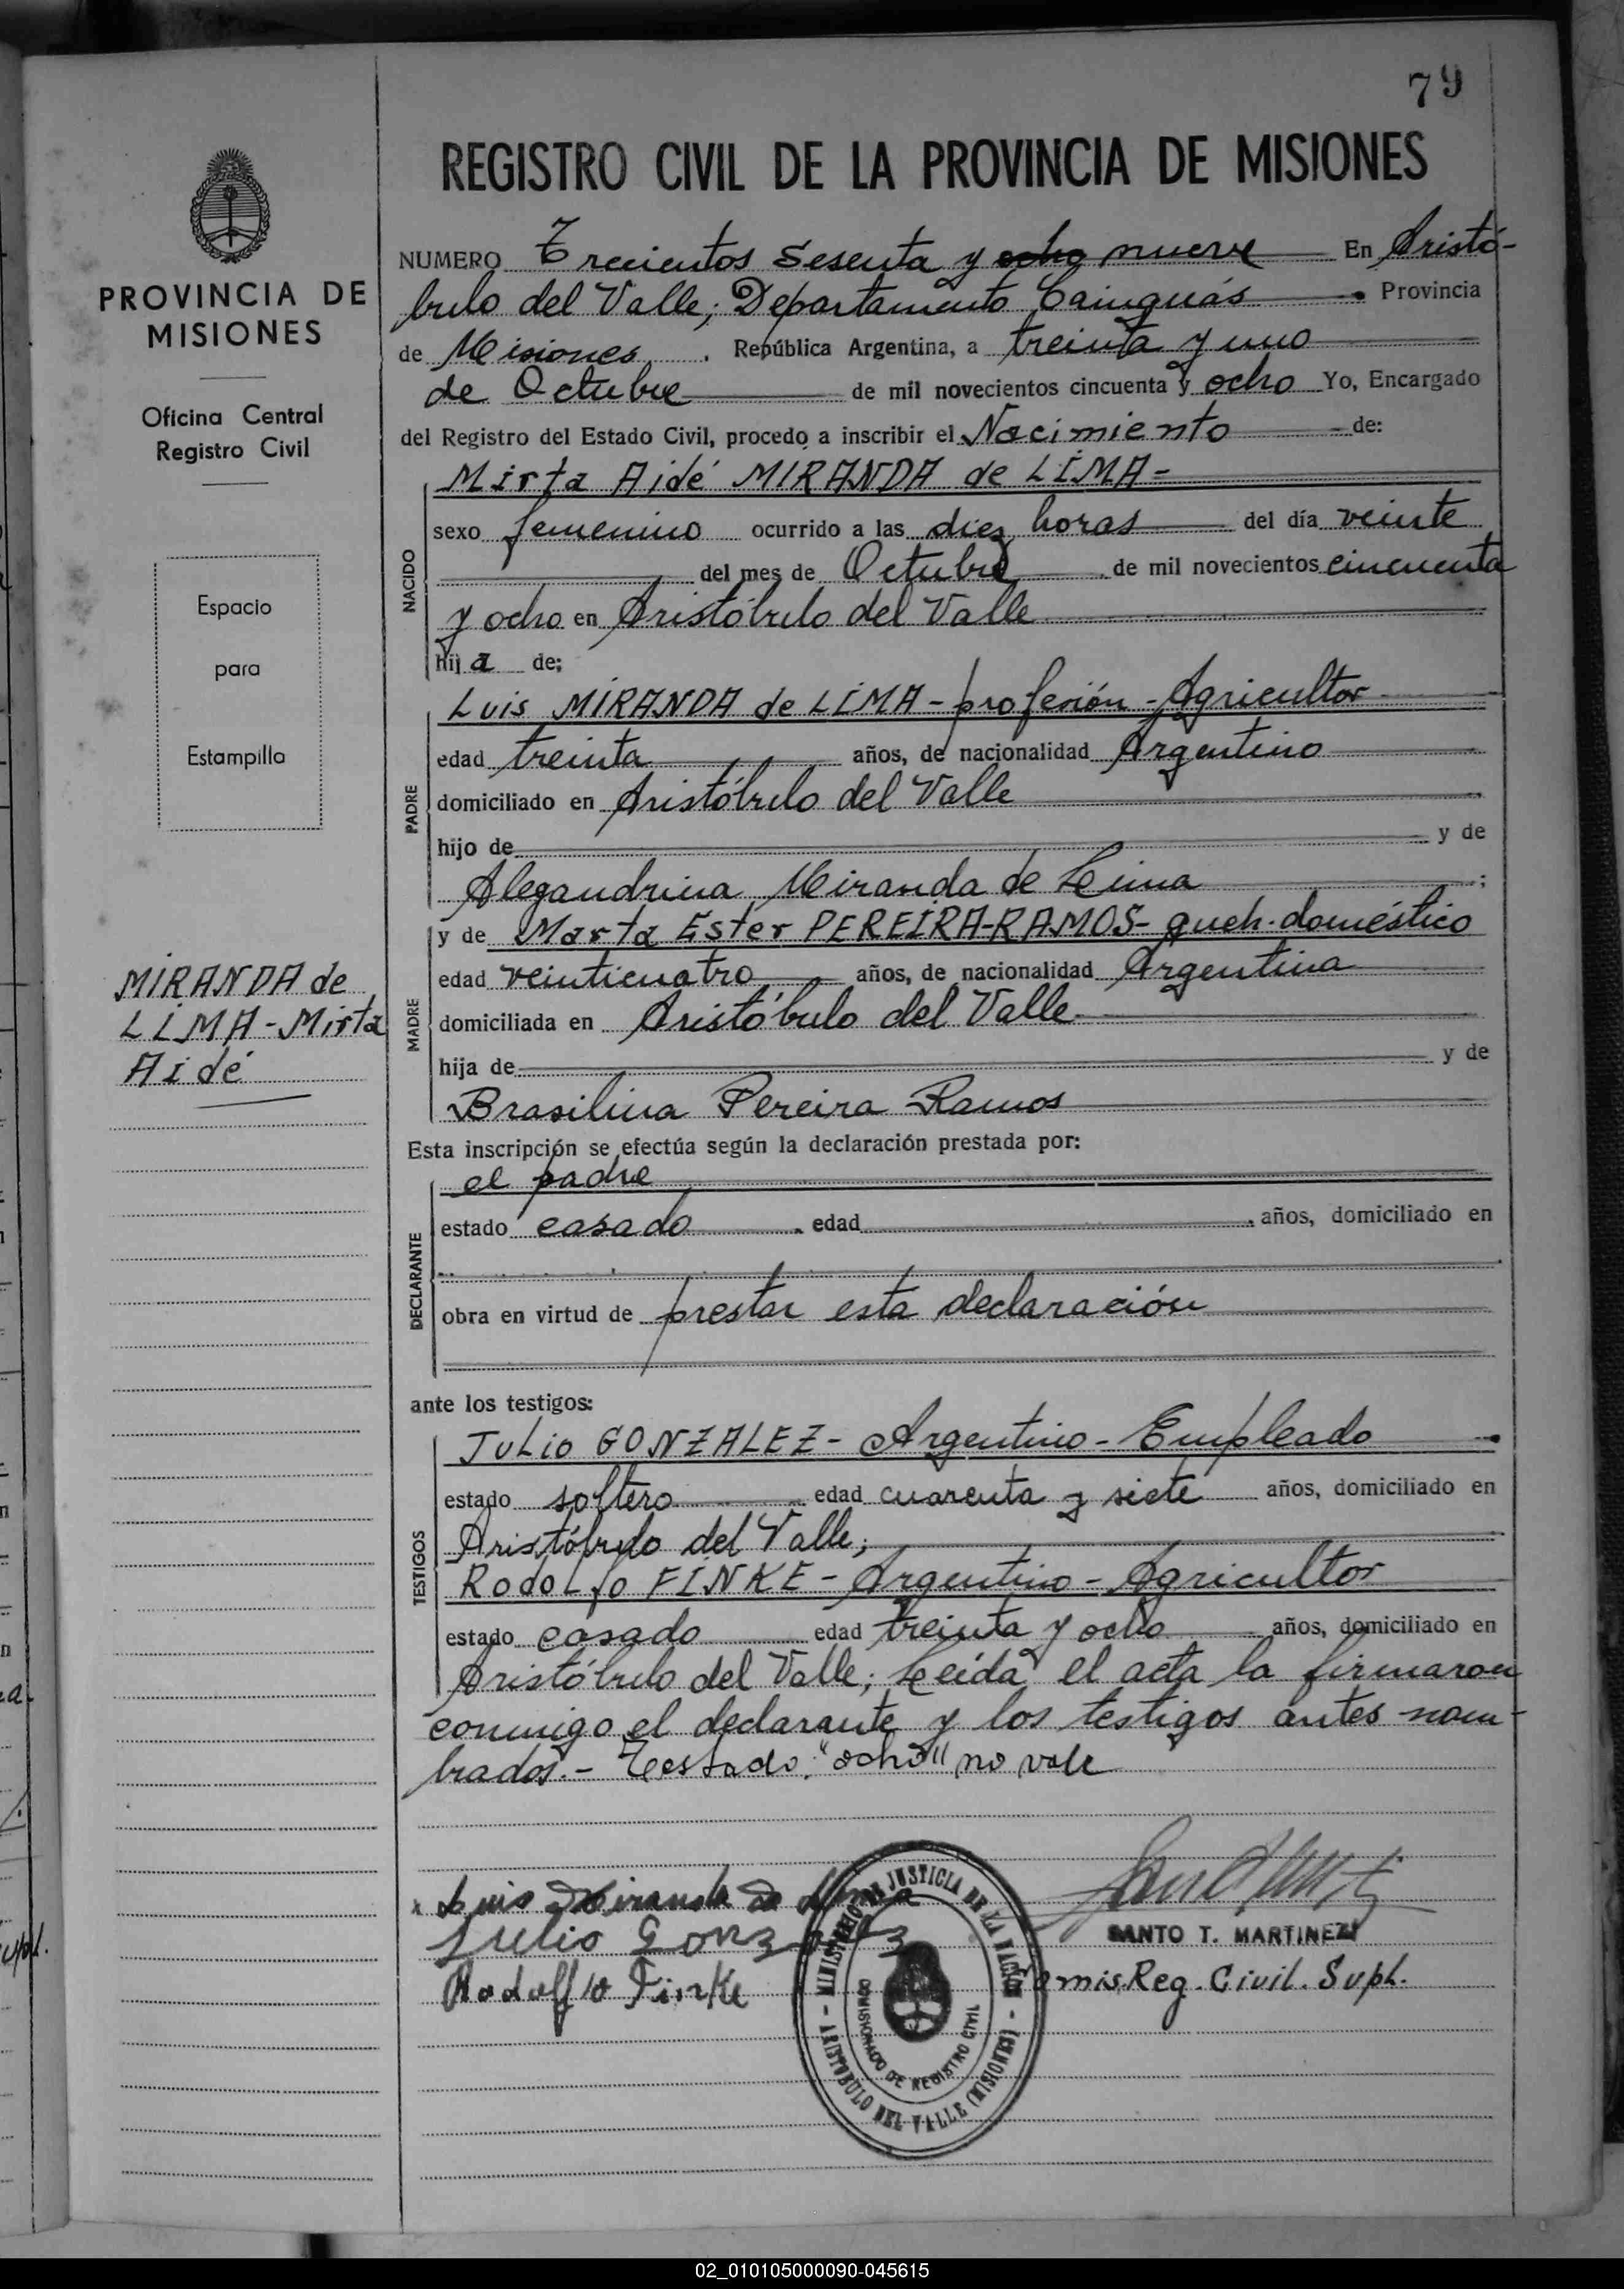 79
REGISTRO CIVIL DE LA PROVINCIA DE MISIONES
PROVINCIA DE
MISIONES
Oficina Central
Registro Civil
Espacio
para
Estampilla
MIRANDA de
LIMA - Mirta
Aidé
NUMERO Trecientos sesenta y ocho nueve En Aristó-
bulo del Valle; Departamento Cainguás Provincia
de Misiones. República Argentina, a treinta y uno
de Octubre de mil novecientos cincuenta y ocho Yo, Encargado
del Registro del Estado Civil, procedo a inscribir el Nacimiento de:
NACIDO
Mirta Aidé MIRANDA de LIMA =
sexo femenino ocurrido a las diez horas del día veinte
del mes de Octubre de mil novecientos cincuenta
y ocho en Aristóbulo del Valle
hij a de:
PADRE
Luis MIRANDA de LIMA - profesión - Agricultor
edad treinta años, de nacionalidad Argentino
domiciliado en Aristóbulo del Valle
hijo de y de
Alegandrina Miranda de Lima ;
MADRE
y de Marta Ester PEREIRA-RAMOS - queh. doméstico
edad veinticuatro años, de nacionalidad Argentina
domiciliada en Aristóbulo del Valle
hija de y de
Brasilina Pereira Ramos
Esta inscripción se efectúa según la declaración prestada por:
DECLARANTE
el padre
estado casado edad años, domiciliado en
obra en virtud de prestar esta declaración
ante los testigos:
TESTIGOS
Julio GONZALEZ - Argentino - Empleado
estado soltero edad cuarenta y siete años, domiciliado en
Aristóbulo del Valle;
Rodolfo FINKE - Argentino - Agricultor
estado casado edad treinta y ocho años, domiciliado en
Aristóbulo del Valle; Leída el acta la firmaron
conmigo el declarante y los testigos antes nom-
brados. - Testado: "ocho" no vale
Luis Miranda de Lima
Julio Gonzalez
Rodolfo Finke
MINISTERIO DE JUSTICIA DE LA NACION - ARISTOBULO DEL VALLE (MISIONES) -
COMISIONADO DE REGISTRO CIVIL
SANTO T. MARTINEZ
Comis. Reg. Civil. Supl.
02_010105000090-045615